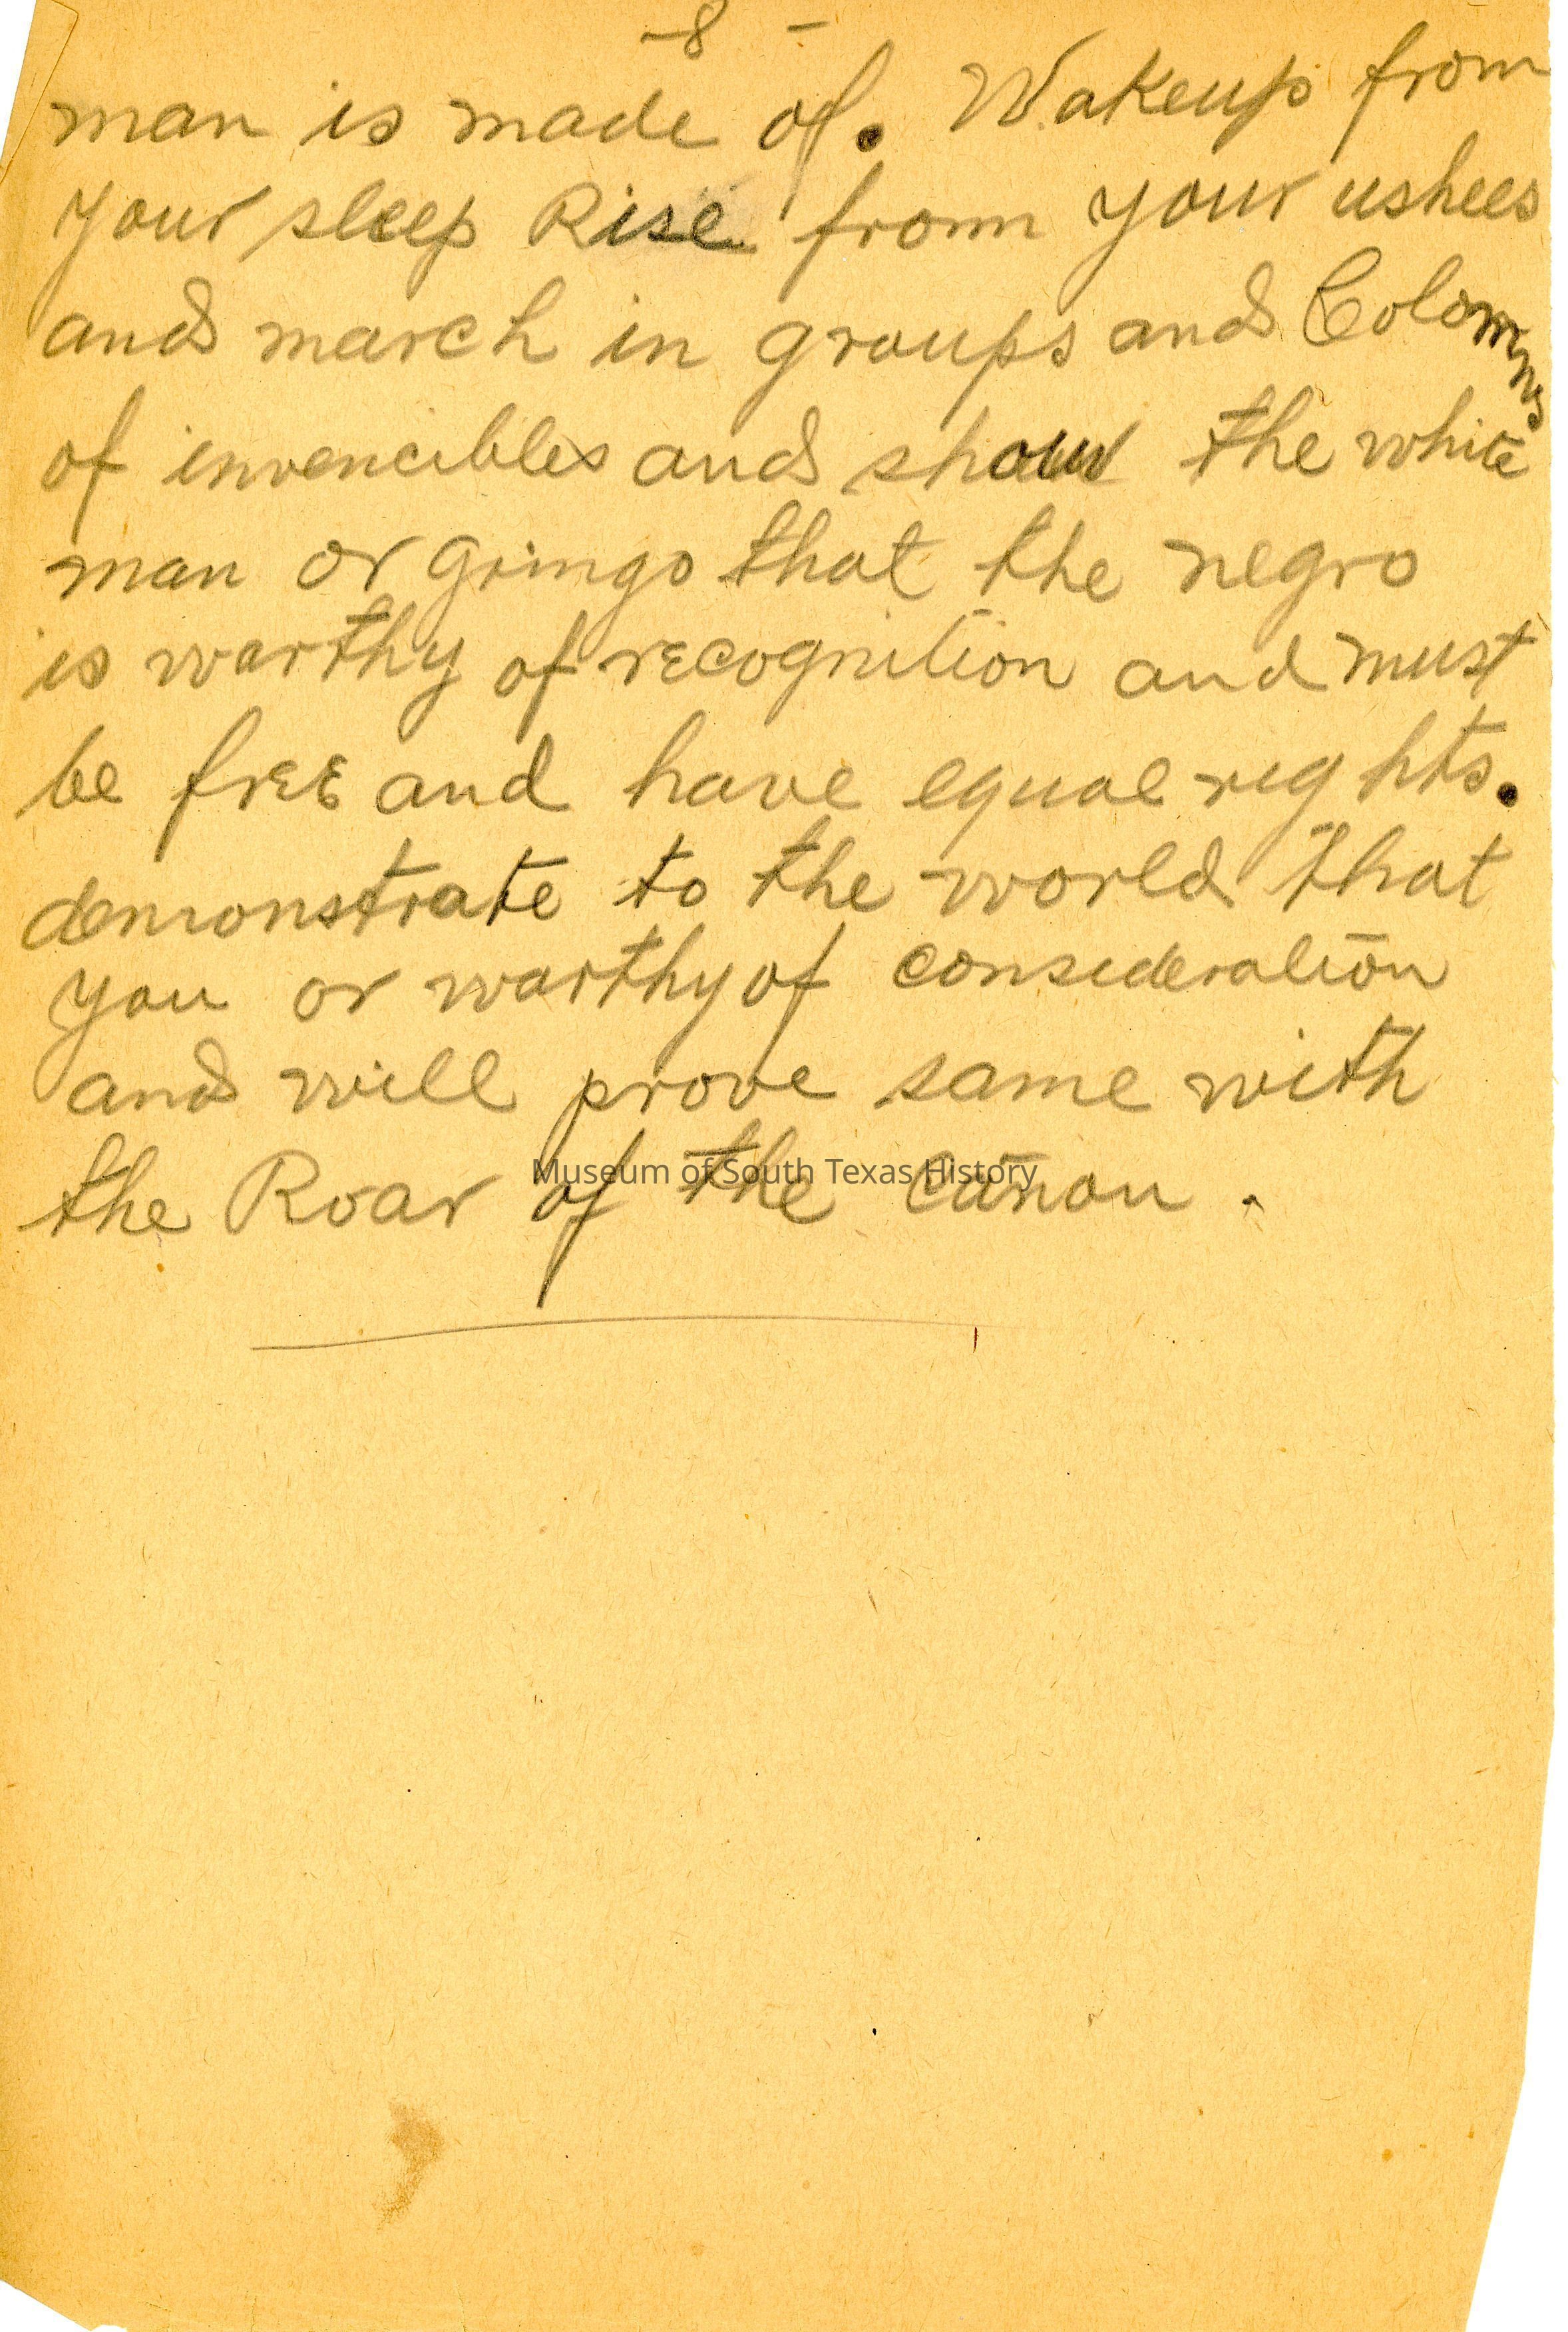 -8-
man is made of. Wakeup from
your sleep Rise from your ushees
and march in groups and Colomns
of invencibles and show the white
man or gringo that the negro
is warthy of recognition and must
be free and have equal rights.
demonstrate to the world that
you or warthy of consideration
and will prove same with
the Roar of the Cañon.
Museum of South Texas History